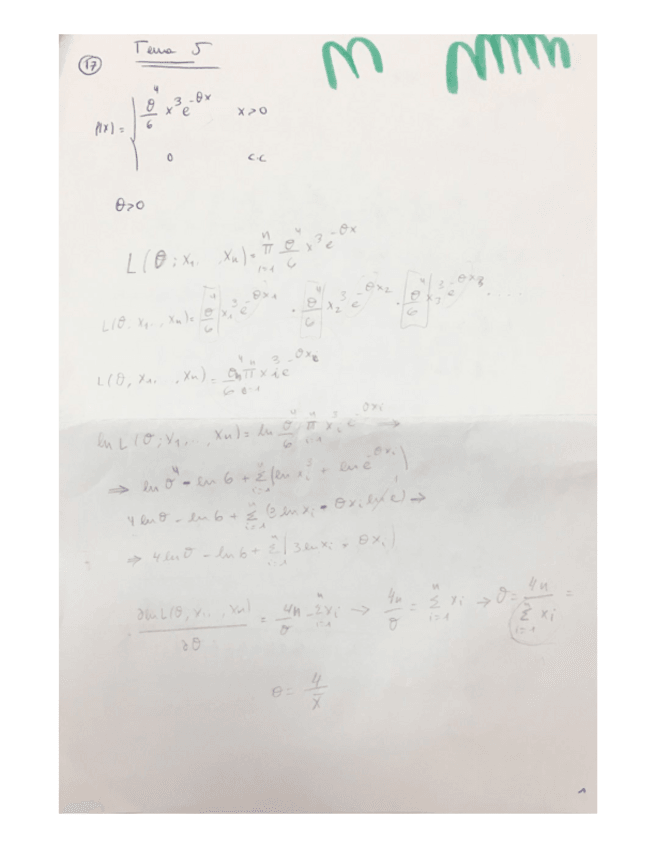 17 Tema 5
f(x) = { θ^4/6 x^3 e^{-θx} x>0
0 c.c
θ>0
L(θ; x1 ... , xn) = π_{i=1}^{n} θ^4/6 x^3 e^{-θx}
L(θ, x1 ... , xn) = θ^4/6 x1^3 e^{-θx1} · θ^4/6 x2^3 e^{-θx2} · θ^4/6 x3^3 e^{-θx3} . ....
L(θ, x1 ... , xn) =
ln L(θ; x1, ... , xn) = ln θ^4/6 π_{i=1}^{n} xi^3 e^{-θxi} ⇒
⇒ ln θ^4 - ln 6 + Σ_{i=1}^{n} (ln xi^3 + ln e^{-θxi})
4 ln θ - ln 6 + Σ_{i=1}^{n} (3 ln xi - θxi ln e) ⇒
⇒ 4 ln θ - ln 6 + Σ_{i=1}^{n} (3 ln xi - θxi)
∂ ln L(θ, x1 ... , xn)/∂θ = 4n/θ - Σ_{i=1}^{n} xi → 4n/θ = Σ_{i=1}^{n} xi → θ = 4n/Σ_{i=1}^{n} xi =
θ = 4/x̄
1